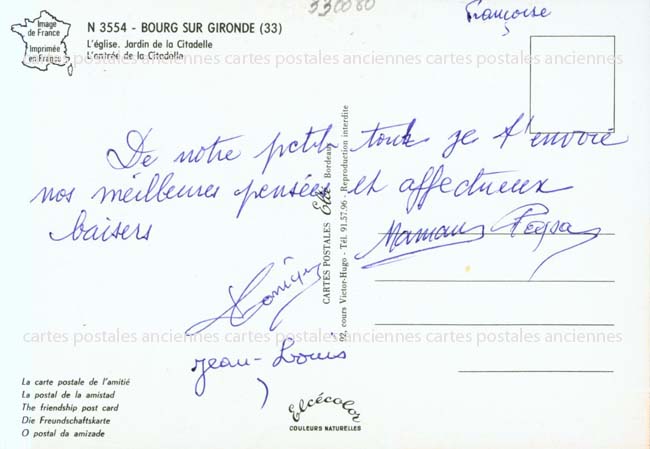 Image
de France
Imprimée
en France
N 3554 - BOURG SUR GIRONDE (33)
L'église. Jardin de la Citadelle
L'entrée de la Citadelle
330080
Françoise
cartes postales anciennes cartes postales anciennes
De notre petit tour je t'envoie
nos meilleures pensées et affectueux
baisers
Maman Papa
Jean-Louis
CARTES POSTALES Elcé Bordeaux
92, cours Victor-Hugo - Tél. 91.57.96 - Reproduction interdite
cartes postales anciennes cartes postales anciennes
La carte postale de l'amitié
La postal de la amistad
The friendship post card
Die Freundschaftskarte
O postal da amizade
Elcécolor
COULEURS NATURELLES